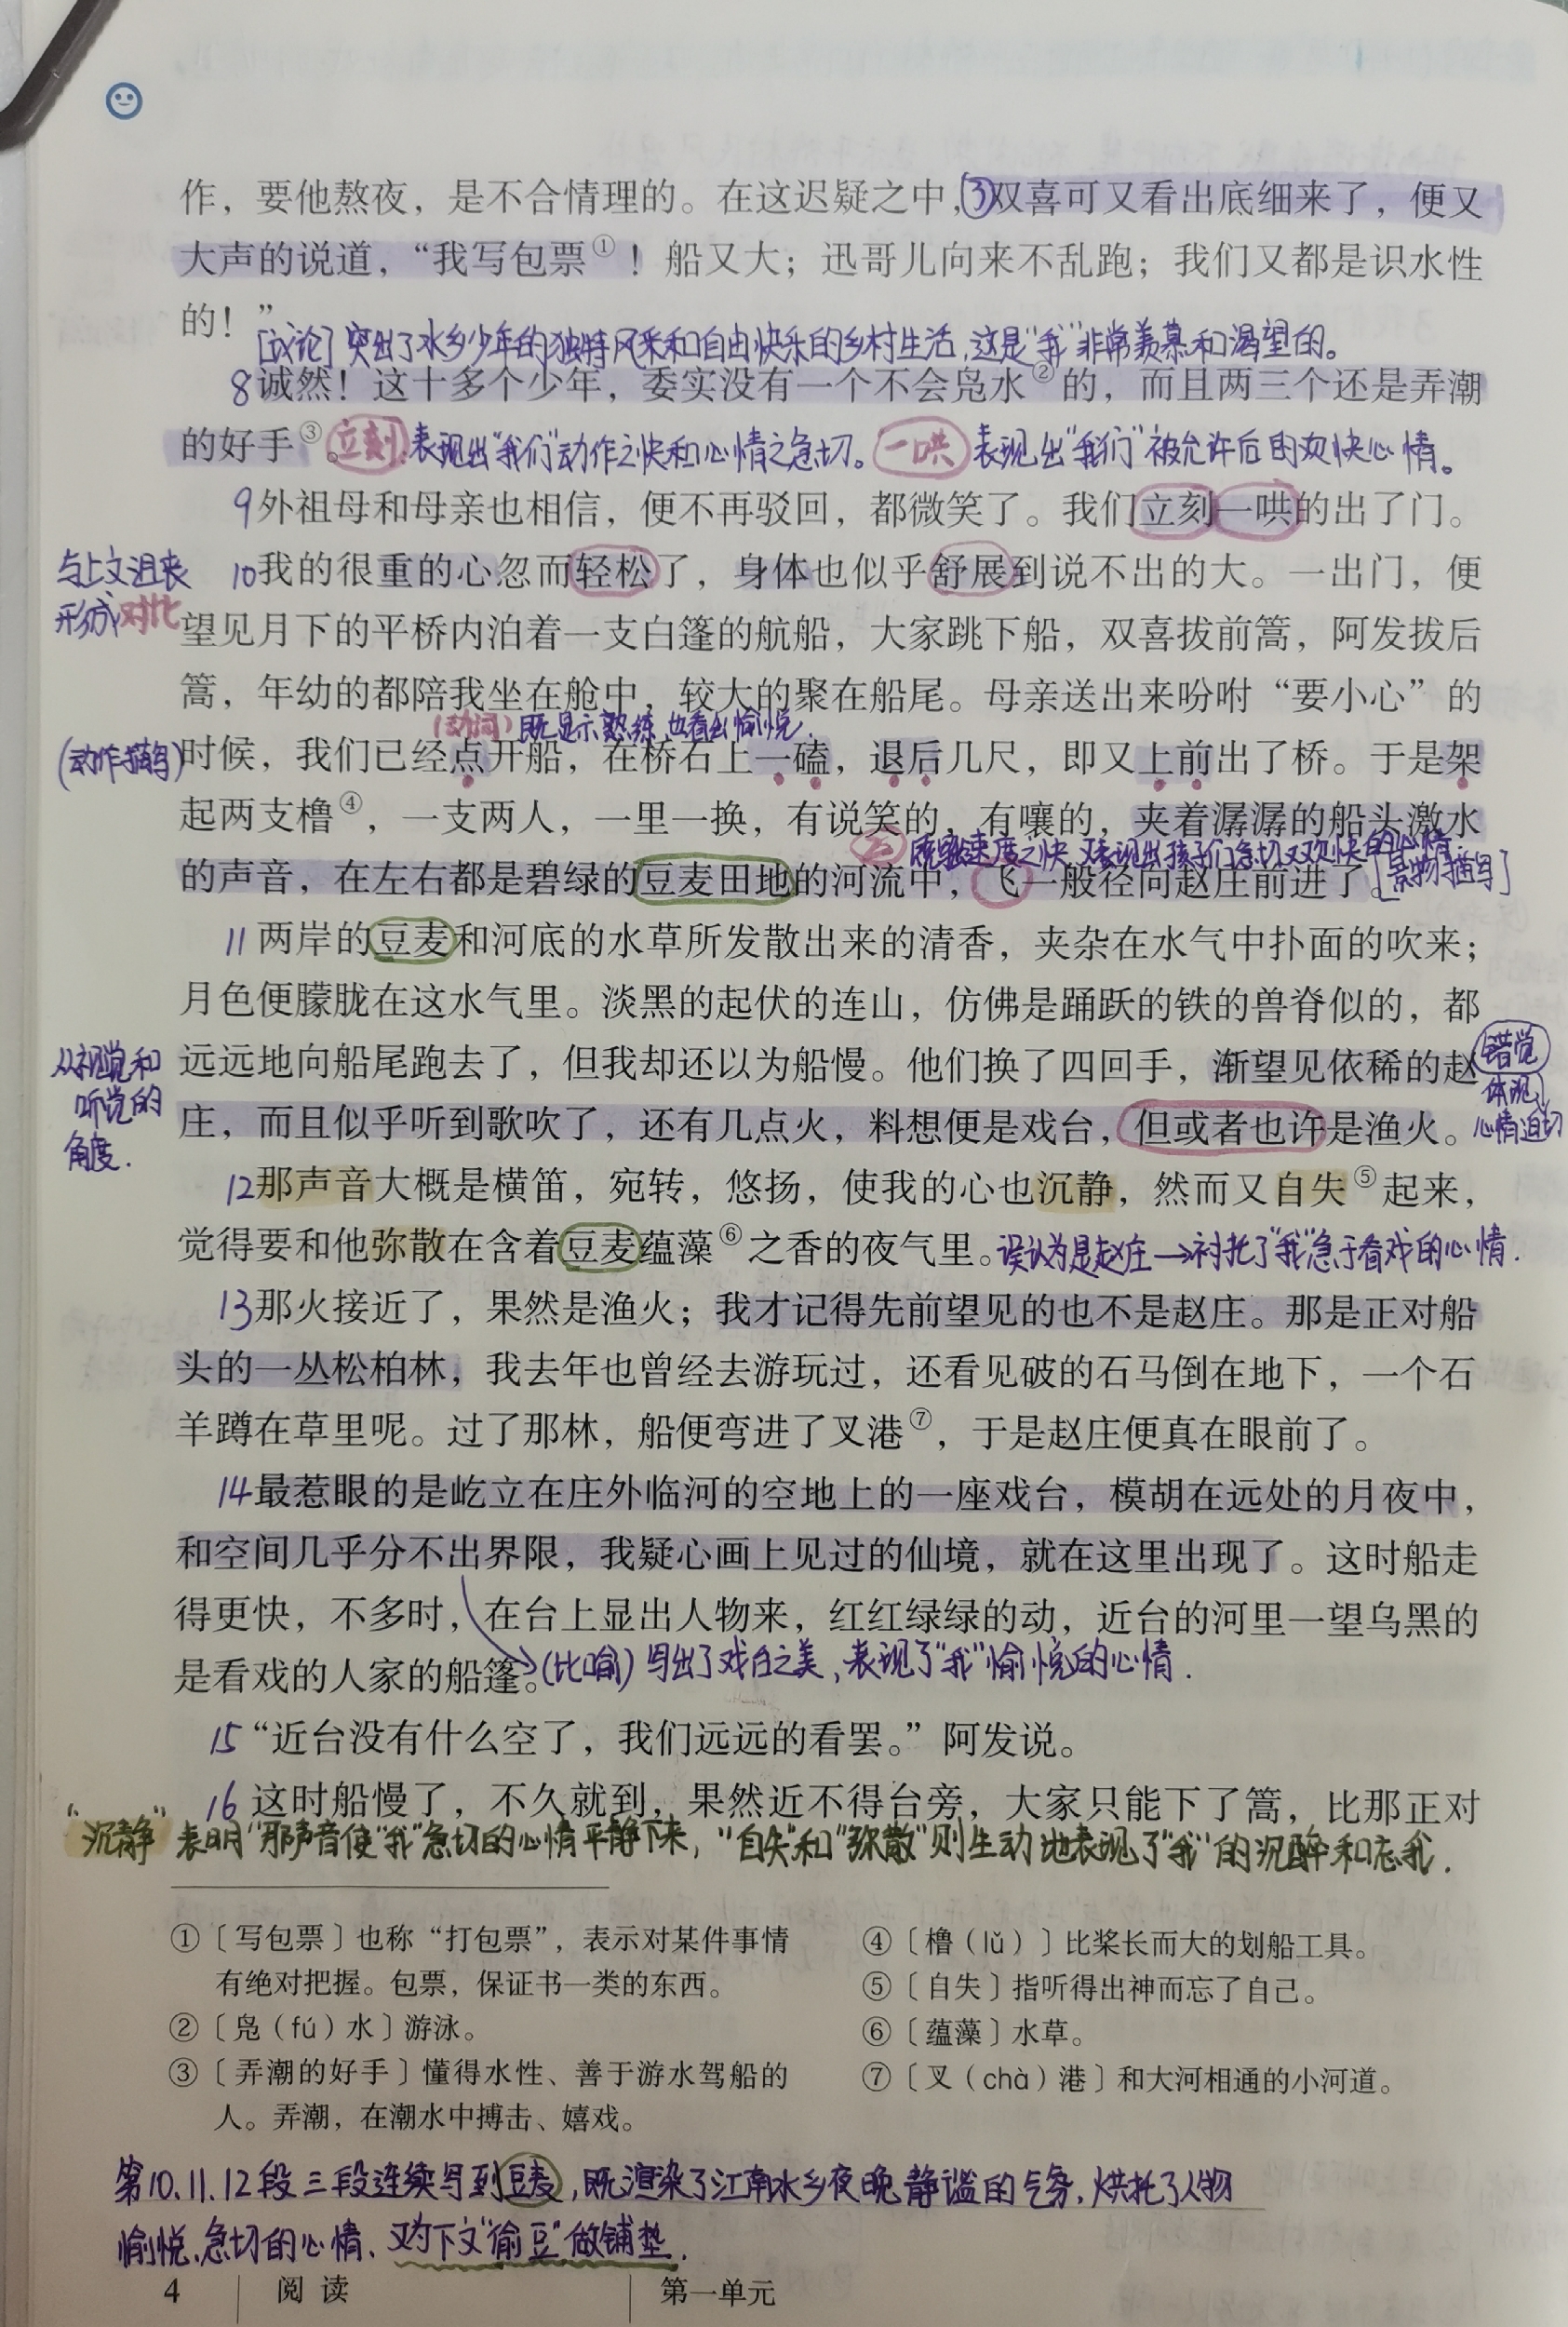 作，要他熬夜，是不合情理的。在这迟疑之中，③双喜可又看出底细来了，便又
大声的说道，“我写包票①！船又大；迅哥儿向来不乱跑；我们又都是识水性
的！”
[议论] 突出了水乡少年的独特风采和自由快乐的乡村生活，这是“我”非常羡慕和渴望的。
8诚然！这十多个少年，委实没有一个不会凫水②的，而且两三个还是弄潮
的好手③。
立刻：表现出“我们”动作之快和心情之急切。 一哄 表现出“我们”被允许后的欢快心情。
9外祖母和母亲也相信，便不再驳回，都微笑了。我们立刻一哄的出了门。
与上文沮丧
形成对比
10我的很重的心忽而轻松了，身体也似乎舒展到说不出的大。一出门，便
望见月下的平桥内泊着一支白篷的航船，大家跳下船，双喜拔前篙，阿发拔后
篙，年幼的都陪我坐在舱中，较大的聚在船尾。母亲送出来吩咐“要小心”的
(动词) 既显示熟练，也看出愉悦.
(动作描写)
时候，我们已经点开船，在桥石上一磕，退后几尺，即又上前出了桥。于是架
起两支橹④，一支两人，一里一换，有说笑的，有嚷的，夹着潺潺的船头激水
速度之快，又表现出孩子们急切又欢快的心情.
的声音，在左右都是碧绿的豆麦田地的河流中，飞一般径向赵庄前进了。
[景物描写]
11两岸的豆麦和河底的水草所发散出来的清香，夹杂在水气中扑面的吹来；
月色便朦胧在这水气里。淡黑的起伏的连山，仿佛是踊跃的铁的兽脊似的，都
从视觉和
听觉的
角度.
远远地向船尾跑去了，但我却还以为船慢。他们换了四回手，渐望见依稀的赵
庄，而且似乎听到歌吹了，还有几点火，料想便是戏台，但或者也许是渔火。
错觉
体现
心情迫切
12那声音大概是横笛，宛转，悠扬，使我的心也沉静，然而又自失⑤起来，
觉得要和他弥散在含着豆麦蕴藻⑥之香的夜气里。
误认为是赵庄→衬托了“我”急于看戏的心情.
13那火接近了，果然是渔火；我才记得先前望见的也不是赵庄。那是正对船
头的一丛松柏林，我去年也曾经去游玩过，还看见破的石马倒在地下，一个石
羊蹲在草里呢。过了那林，船便弯进了叉港⑦，于是赵庄便真在眼前了。
14最惹眼的是屹立在庄外临河的空地上的一座戏台，模胡在远处的月夜中，
和空间几乎分不出界限，我疑心画上见过的仙境，就在这里出现了。这时船走
得更快，不多时，在台上显出人物来，红红绿绿的动，近台的河里一望乌黑的
是看戏的人家的船篷。
(比喻) 写出了戏台之美，表现了“我”愉悦的心情.
15“近台没有什么空了，我们远远的看罢。”阿发说。
16这时船慢了，不久就到，果然近不得台旁，大家只能下了篙，比那正对
“沉静”表明“那声音使“我”急切的心情平静下来，“自失”和“弥散”则生动地表现了“我”的沉醉和忘我.
①〔写包票〕也称“打包票”，表示对某件事情
有绝对把握。包票，保证书一类的东西。
②〔凫（fú）水〕游泳。
③〔弄潮的好手〕懂得水性、善于游水驾船的
人。弄潮，在潮水中搏击、嬉戏。
④〔橹（lǔ）〕比桨长而大的划船工具。
⑤〔自失〕指听得出神而忘了自己。
⑥〔蕴藻〕水草。
⑦〔叉（chà）港〕和大河相通的小河道。
第10.11.12段三段连续写到豆麦，既渲染了江南水乡夜晚静谧的气氛，烘托了人物
愉悦、急切的心情、又为下文“偷豆”做铺垫.
4
阅读
第一单元